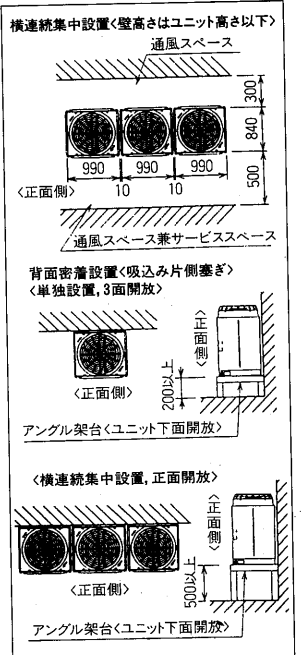 横連続集中設置<壁高さはユニット高さ以下>
通風スペース
300
840
500
990 990 990
10 10
<正面側>
通風スペース兼サービススペース
背面密着設置<吸込み片側塞ぎ>
<単独設置,3面開放>
<正面側>
<正面側>
200以上
アングル架台<ユニット下面開放>
<横連続集中設置,正面開放>
<正面側>
<正面側>
500以上
アングル架台<ユニット下面開放>